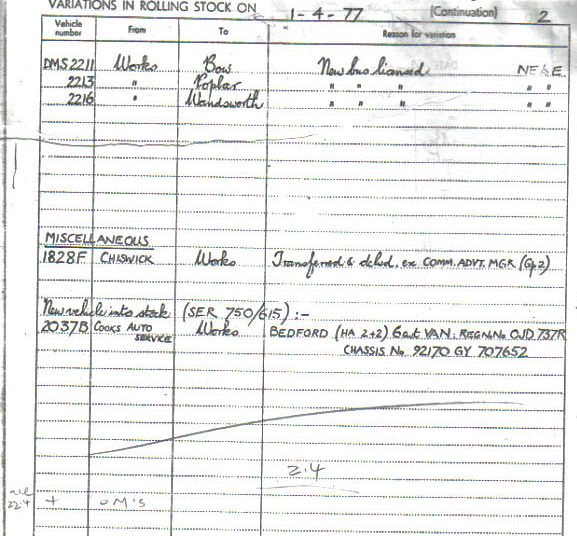 VARIATIONS IN ROLLING STOCK ON 1-4-77 (Continuation) 2
Vehicle number From To Reason for variation
DMS 2211 Works Bow New bus licensed NE & E.
2213 " Poplar " " " " "
2216 " Wandsworth " " " " "
MISCELLANEOUS
1828F CHISWICK Works Transferred & dclsd. ex COMM. ADVT. MGR (Gp 2)
New vehicle into stock (SER 750/615) :-
2037B COOKS AUTO SERVICE Works BEDFORD (HA 2+2) 6cwt VAN: REGN. No OJD 737R
CHASSIS No 92170 GY 707652
2.4
22.4 + O M'S